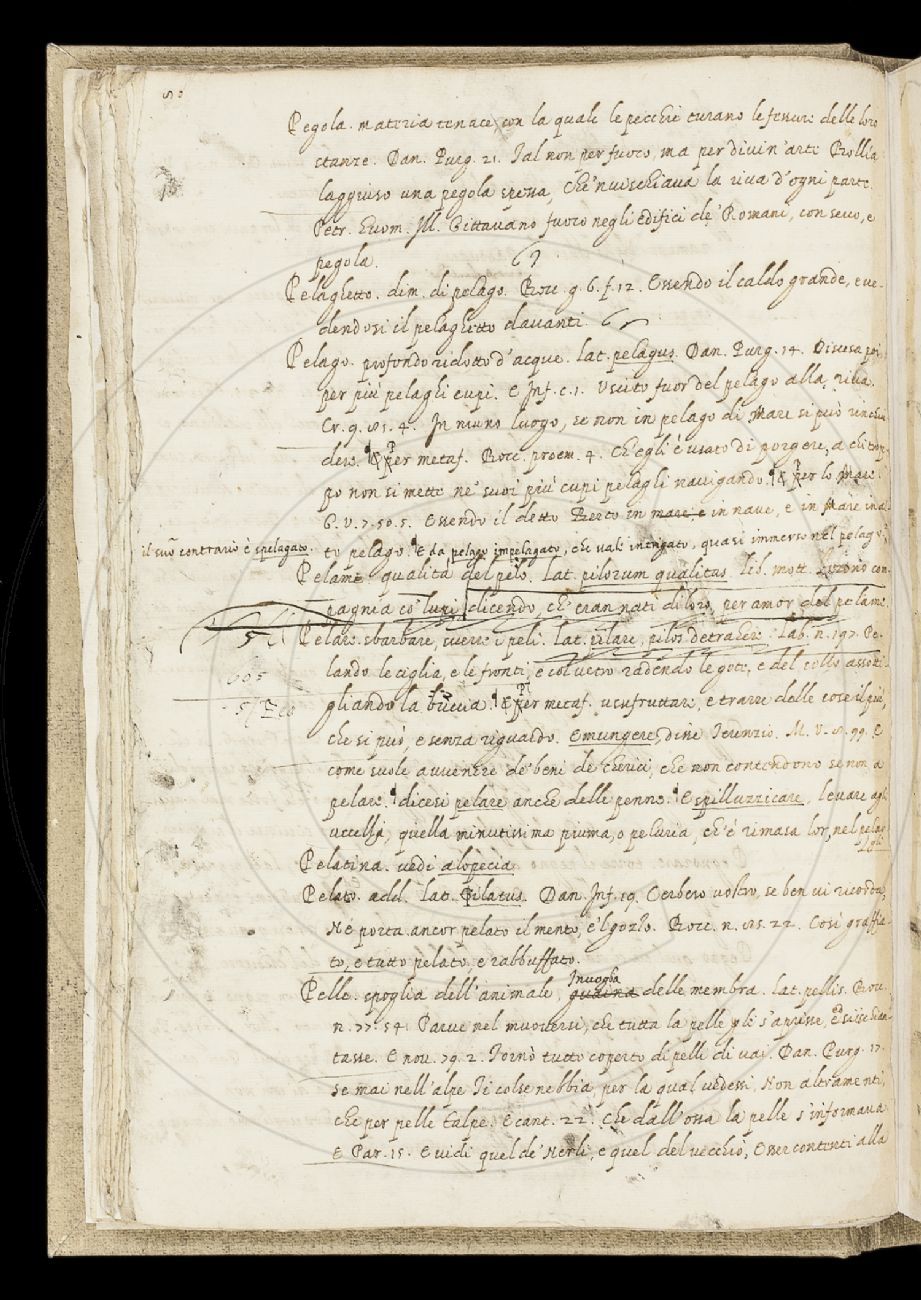 Pegola. materia tenace con la quale le pecchie turano le fessure delle loro
stanze. Dan. Purg. 21. Tal non per fuoco, ma per divin'arte Bollía
laggiuso una pegola spessa, che'nviscava la riva d'ogni parte.
Petr. Huom. Ill. Gittavano fuoco negli edifici de' Romani, con sevo, e
pegola.
Pelaghetto. dim. di pelago. Bocc. g. 6. f. 12. Essendo il caldo grande, e ve-
dendosi il pelaghetto davanti.
Pelago. profondo ridotto d'acque. lat. pelagus. Dan. Purg. 14. Discesa poi,
per più pelaghi cupi. E Inf. c. 1. Uscito fuor del pelago alla riva.
Cr. 9. 81. 4. In niuno luogo, se non in pelago di Mare si può rinchiu
dere. ¶ & Per metaf. Bocc. proem. 4. Ch'egli è usato di porgere, a chi trop
po non si mette ne' suoi più cupi pelaghi navigando. ¶ & Per lo Mare.
G. V. 7. 50. 5. Essendo il detto Berto in mare e in nave, e in Mare in al
il suo contrario è spelagato.
to pelago. ¶ E da pelago impelagato, che vale intrigato, quasi immerso nel pelago
Pelame qualità del pelo. lat. pilorum qualitas. lib. mott.
pagnia co' lupi dicendo, ch'eran nati di loro, per amor del pelame.
Pelare. sbarbare, sverre i peli. lat. pilare, pilos detrahere. Lab. n. 197. Pe-
lando le ciglia, e le fronti, e col vetro radendo le gote, e del collo assotti-
gliando la buccia. ¶ & Per metaf. usufruttare, e trarre delle cose il più,
che si può, e senza riguardo. Emungere, disse Terenzio. M. V. 8. 99. E
come suole avvenire de' beni de' cherici, che non contendono se non a
pelare. ¶ dicesi pelare anche delle penne. ¶ E spilluzzicare, levare agli
uccelli, quella minutissima piuma, o peluria, ch'è rimasa lor, nel pelar
gli
Pelatina. vedi alopecia.
Pelato. add. lat. Pilatus. Dan. Inf. 19. Cerbero vostro, se ben vi ricorda,
Ne porta ancor pelato il mento, e'l gozzo. Bocc. n. 85. 22. Così graffia-
to, e tutto pelato, e rabbuffato.
Invoglia
Pelle. spoglia dell'animale, guaina delle membra. lat. pellis. Bocc.
n. 77. 54. Parve nel muoversi, che tutta la pelle gli s'aprisse, e si ischian
tasse. E nov. 79. 2. Tornò tutto coperto di pelli di vai. Dan. Purg. 17.
se mai nell'alpe Ti colse nebbia, per la qual vedessi, Non altramenti,
che per pelle talpe. E cant. 22. Che dall'ossa la pelle s'informava
E Par. 15. E vidi quel de' Nerli, e quel del vecchio, Esser contenti alla